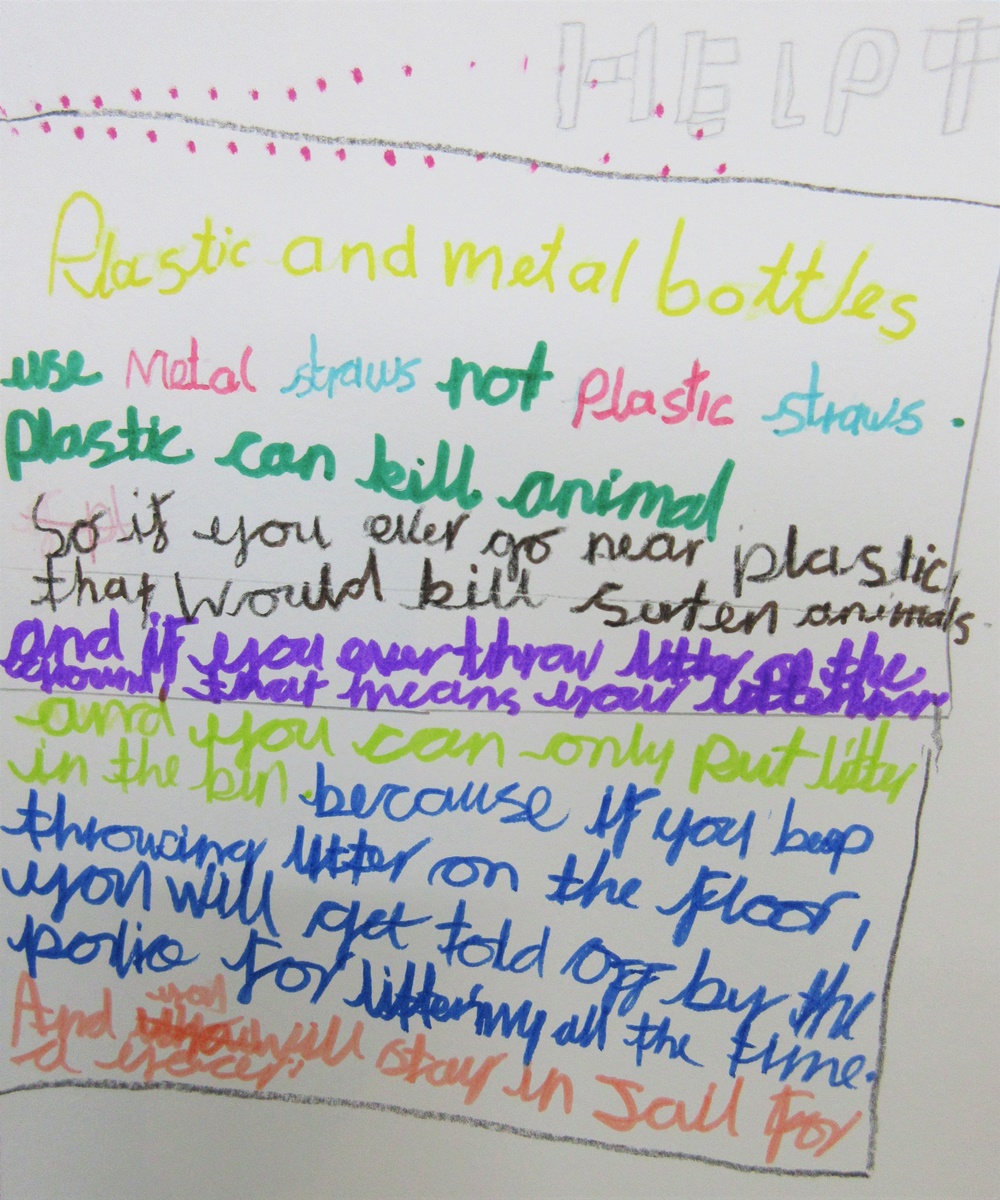 HELP T
Plastic and metal bottles
use Metal straws not Plastic straws.
plastic can kill animal
So if you ever go near plastic,
that would kill surten animals.
and if you ever throw litter on the
ground, that means your
and you can only put litter
in the bin. because if you keep
throwing litter on the floor,
you will get told off by the
police for littering all the time.
And you will stay in Jail for
a